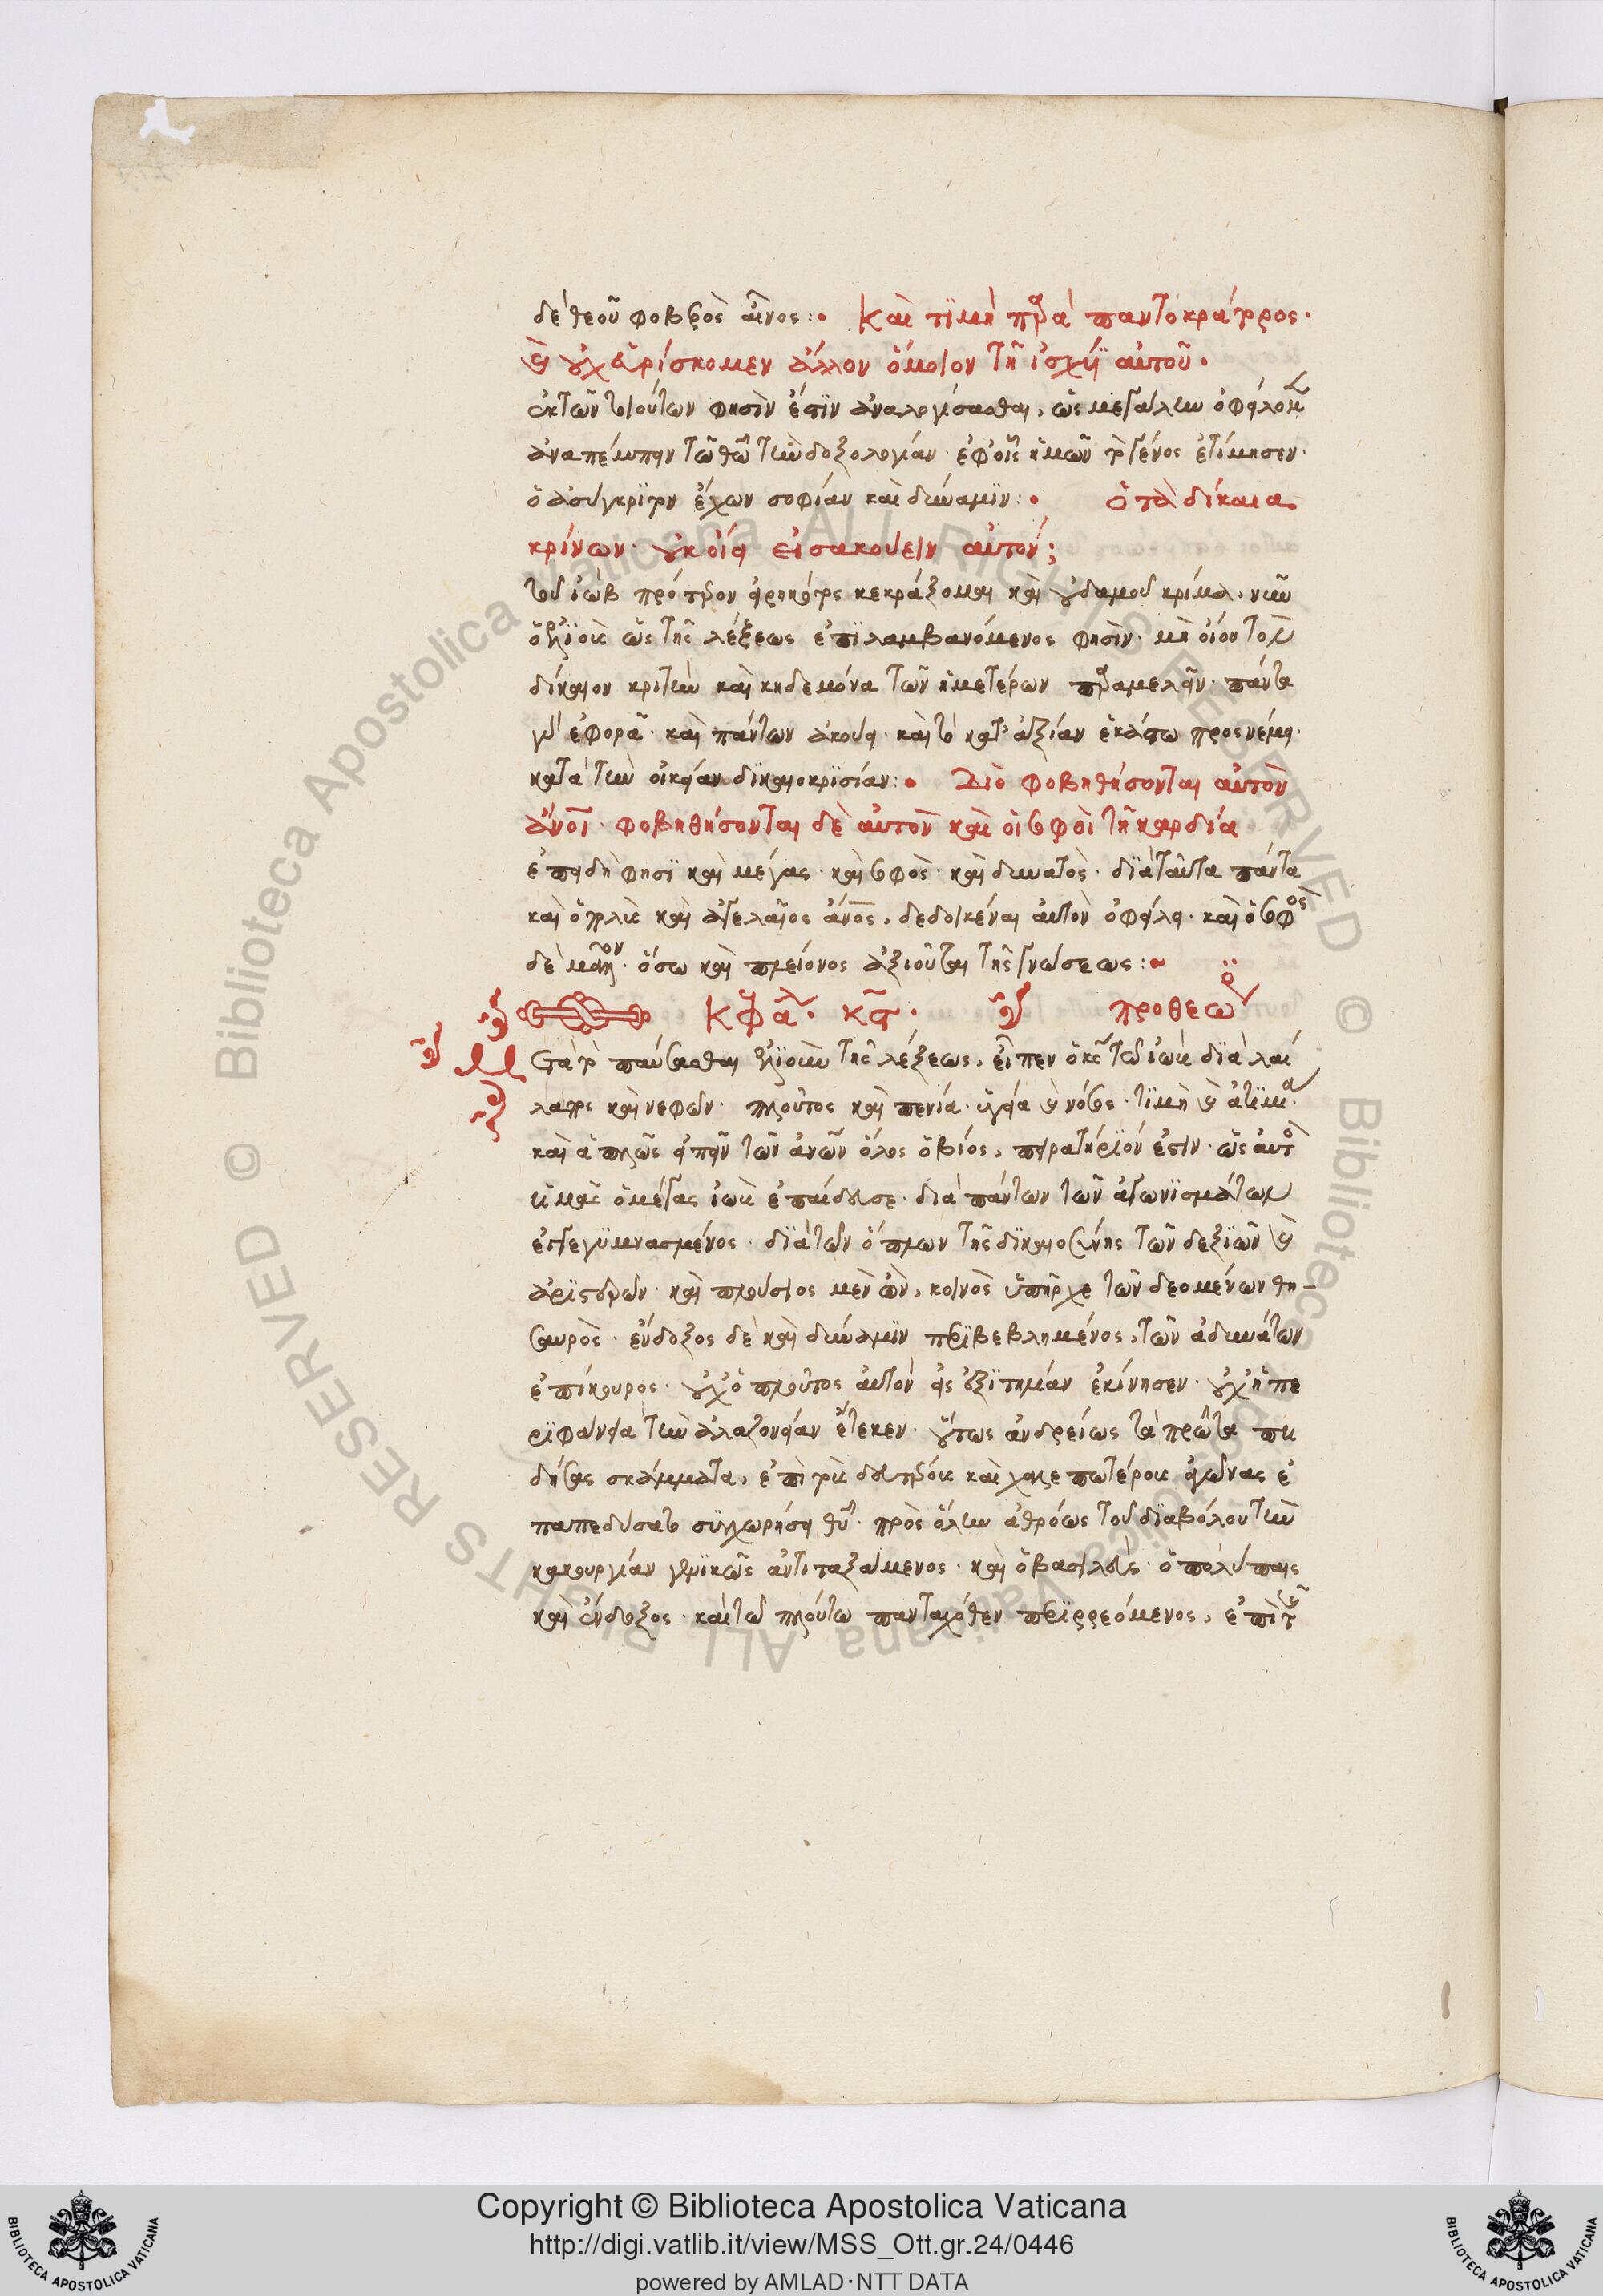 δὲ θεοῦ φοβερὸς αἶνος:· Καὶ τιμὴ παρὰ παντοκράτορος·
καὶ οὐχ εὑρίσκομεν ἄλλον ὅμοιον τῆ ἰσχύϊ αὐτοῦ·
ἐκ τῶν τοιούτων φησὶν ἔστιν ἀναλογίσασθαι, ὡς μεγάλην ὀφείλομεν
ἀναπέμπειν τῶ θῶ τὴν δοξολογίαν· ἐφ' οἷς ἡμῶν τὸ γένος ἐτίμησεν·
ὁ ἀσύγκριτον ἔχων σοφίαν καὶ δύναμιν:· ὁ τὰ δίκαια
κρίνων· οὐκ οἴει εἰσακούειν αὐτόν;
τοῦ ἰὼβ πρότερον εἰρηκότος κεκράξομαι καὶ οὐδαμοῦ κρίμα, νῦν
ὁ ἐλιοὺς ὡς τῆς λέξεως ἐπιλαμβανόμενος φησὶν· μὴ οἴου τὸν
δίκαιον κριτὴν καὶ κηδεμόνα τῶν ἡμετέρων παραμελεῖν· πάντα
γὰρ ἐφορᾶ· καὶ πάντων ἀκούει· καὶ τὸ κατ' ἀξίαν ἑκάστω προσνέμει·
κατὰ τὴν οἰκείαν δικαιοκρισίαν:· Διὸ φοβηθήσονται αὐτὸν
ἄνοι· φοβηθήσονται δὲ αὐτὸν καὶ οἱ σοφοὶ τῆ καρδία
ἐπειδὴ φησὶ καὶ μέγας· καὶ σοφὸς· καὶ δυνατὸς· διὰ ταῦτα πάντα
καὶ ὁ πολὺς καὶ ἀγελαῖος ἄνος, δεδοικέναι αὐτὸν ὀφείλει· καὶ ὁ σοφὸς
δὲ μᾶλλον· ὅσω καὶ πλείονος ἀξιοῦται τῆς γνώσεως:·
Κεφαλ· κϛ· προθεω
Μετὰ τὸ παύσασθαι ἐλιοὺν τῆς λέξεως, εἶπεν ὁ κς τῶ ἰὼβ διὰ λαί
λαπος καὶ νεφῶν· πλοῦτος καὶ πενία· ὑγεία καὶ νόσος· τιμὴ καὶ ἀτιμία·
καὶ ἁπλῶς εἰπεῖν τῶν ἀνων ὅλος ὁ βίος, πειρατήριόν ἐστιν· ὡς αὐτὸς
ἡμᾶς ὁ μέγας ἰὼβ ἐπαίδευσε· διὰ πάντων τῶν ἀγωνισμάτων
ἐγγεγυμνασμένος· διὰ τῶν ὅπλων τῆς δικαιοσύνης τῶν δεξιῶν καὶ
ἀριστερῶν· καὶ πλούσιος μὲν ὢν, κοινὸς ὑπῆρχε τῶν δεομένων θη-
σαυρὸς· ἔνδοξος δὲ καὶ δύναμιν περιβεβλημένος, τῶν ἀδυνάτων
ἐπίκουρος· οὐχ ὁ πλοῦτος αὐτὸν εἰς ὑξιτημίαν ἐκίνησεν· οὐχ ἡ πε
ριφάνεια τὴν ἀλαζονείαν ἔτεκεν· οὕτως ἀνδρείως τὰ πρῶτα πη
δήσας σκάμματα, ἐπὶ τοὺς δευτέρους καὶ χαλεπωτέρους ἀγῶνας ἐ
παπεδύσατο συγχωρήσει θυ· πρὸς ὅλην ἀθρόως τοῦ διαβόλου τὴν
κακουργίαν γεννικῶς ἀντιταξάμενος· καὶ ὁ βασιλεὺς· ὁ πολύπαις
καὶ ἔνδοξος· καὶ τῶ πλούτω πανταχόθεν περιρρεόμενος, ἐπὶ τῆς